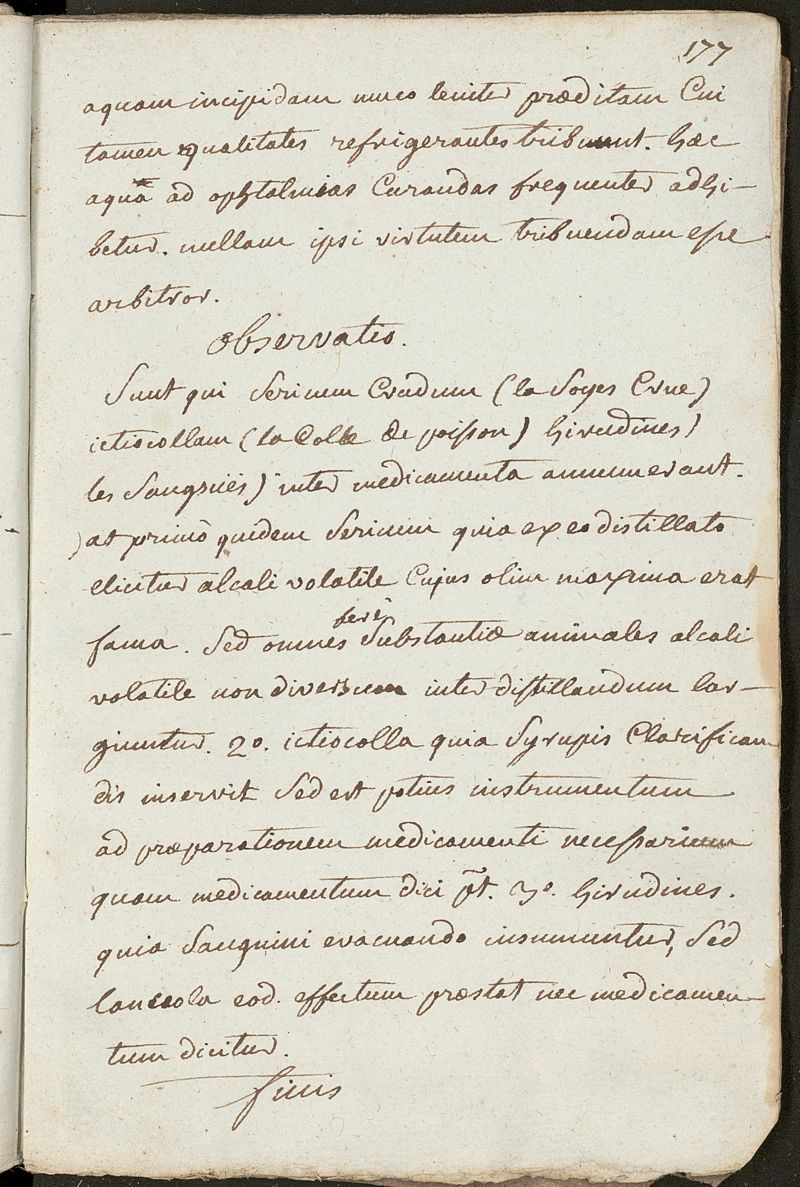 177
aquam incipidam muco leniter præditam Cui
tamen qualitates refrigerantes tribuunt. hæc
aqua ad ophtalmias Curandas frequenter adhi-
betur. nullam ipsi virtutem tribuendam esse
arbitror.
observatio.
Sunt qui Sericum Crudum (la Soyes Crue)
ictiocollam (la Colle de poisson) hirudines)
les Sangsües) inter medicamenta annumerant.
at primò quidem Sericum quia ex eo distillato
elicitur alcali volatile Cujus olim maxima erat
fama. Sed omnes ferè Substantiæ animales alcali
volatile non diversum inter distillandum lar-
giuntur. 2o. ictiocolla quia Syrupis Clarifican
dis inservit Sed est potius instrumentum
ad præparationem medicamenti necessarium
quam medicamentum dici pt. 3o. hirudines.
quia Sanguini evacuando insumuntur, Sed
lanceola eod. effectum præstat nec medicamen-
tum dicitur.
finis